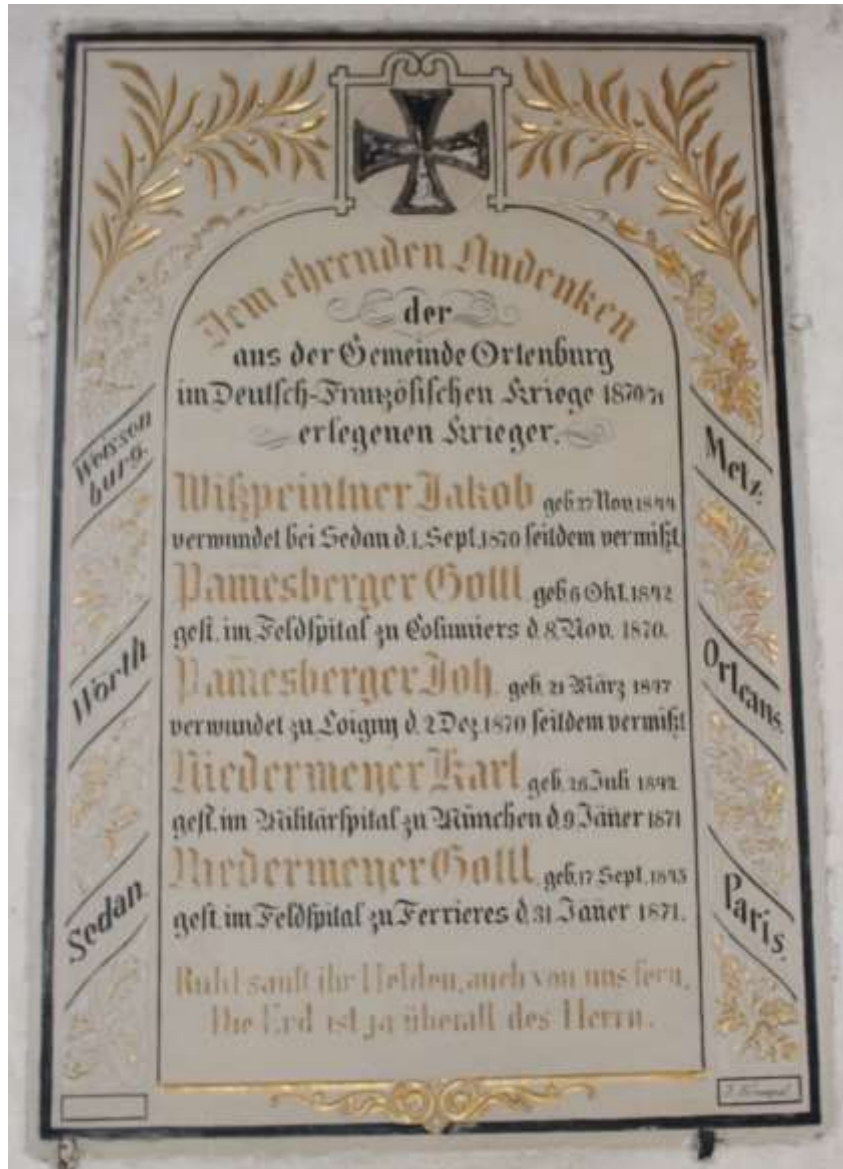 Dem ehrenden Andenken
der
aus der Gemeinde Ortenburg
im Deutsch-Französischen Kriege 1870/71
erlegenen Krieger.
Wißpeintner Jakob geb. 27 Nov. 1844
verwundet bei Sedan d. 1. Sept. 1870 seitdem vermißt.
Pam̅esberger Gottl. geb. 6 Okt. 1842
gest. im Feldspital zu Columiers d. 8. Nov. 1870.
Pam̅esberger Joh. geb. 21 März 1847
verwundet zu Loigny d. 2 Dez. 1870 seitdem vermißt
Niedermeyer Karl geb. 26 Juli 1842.
gest. im Militärspital zu München d. 9 Jän̅er 1871
Niedermeyer Gottl. geb. 17 Sept. 1845
gest. im Feldspital zu Ferrieres d. 31 Jan̅er 1871.
Ruht sanft ihr Helden, auch von uns fern,
Die Erd ist ja überall des Herrn.
Weissen
burg.
Wörth
Sedan.
Metz.
Orleans.
Paris.